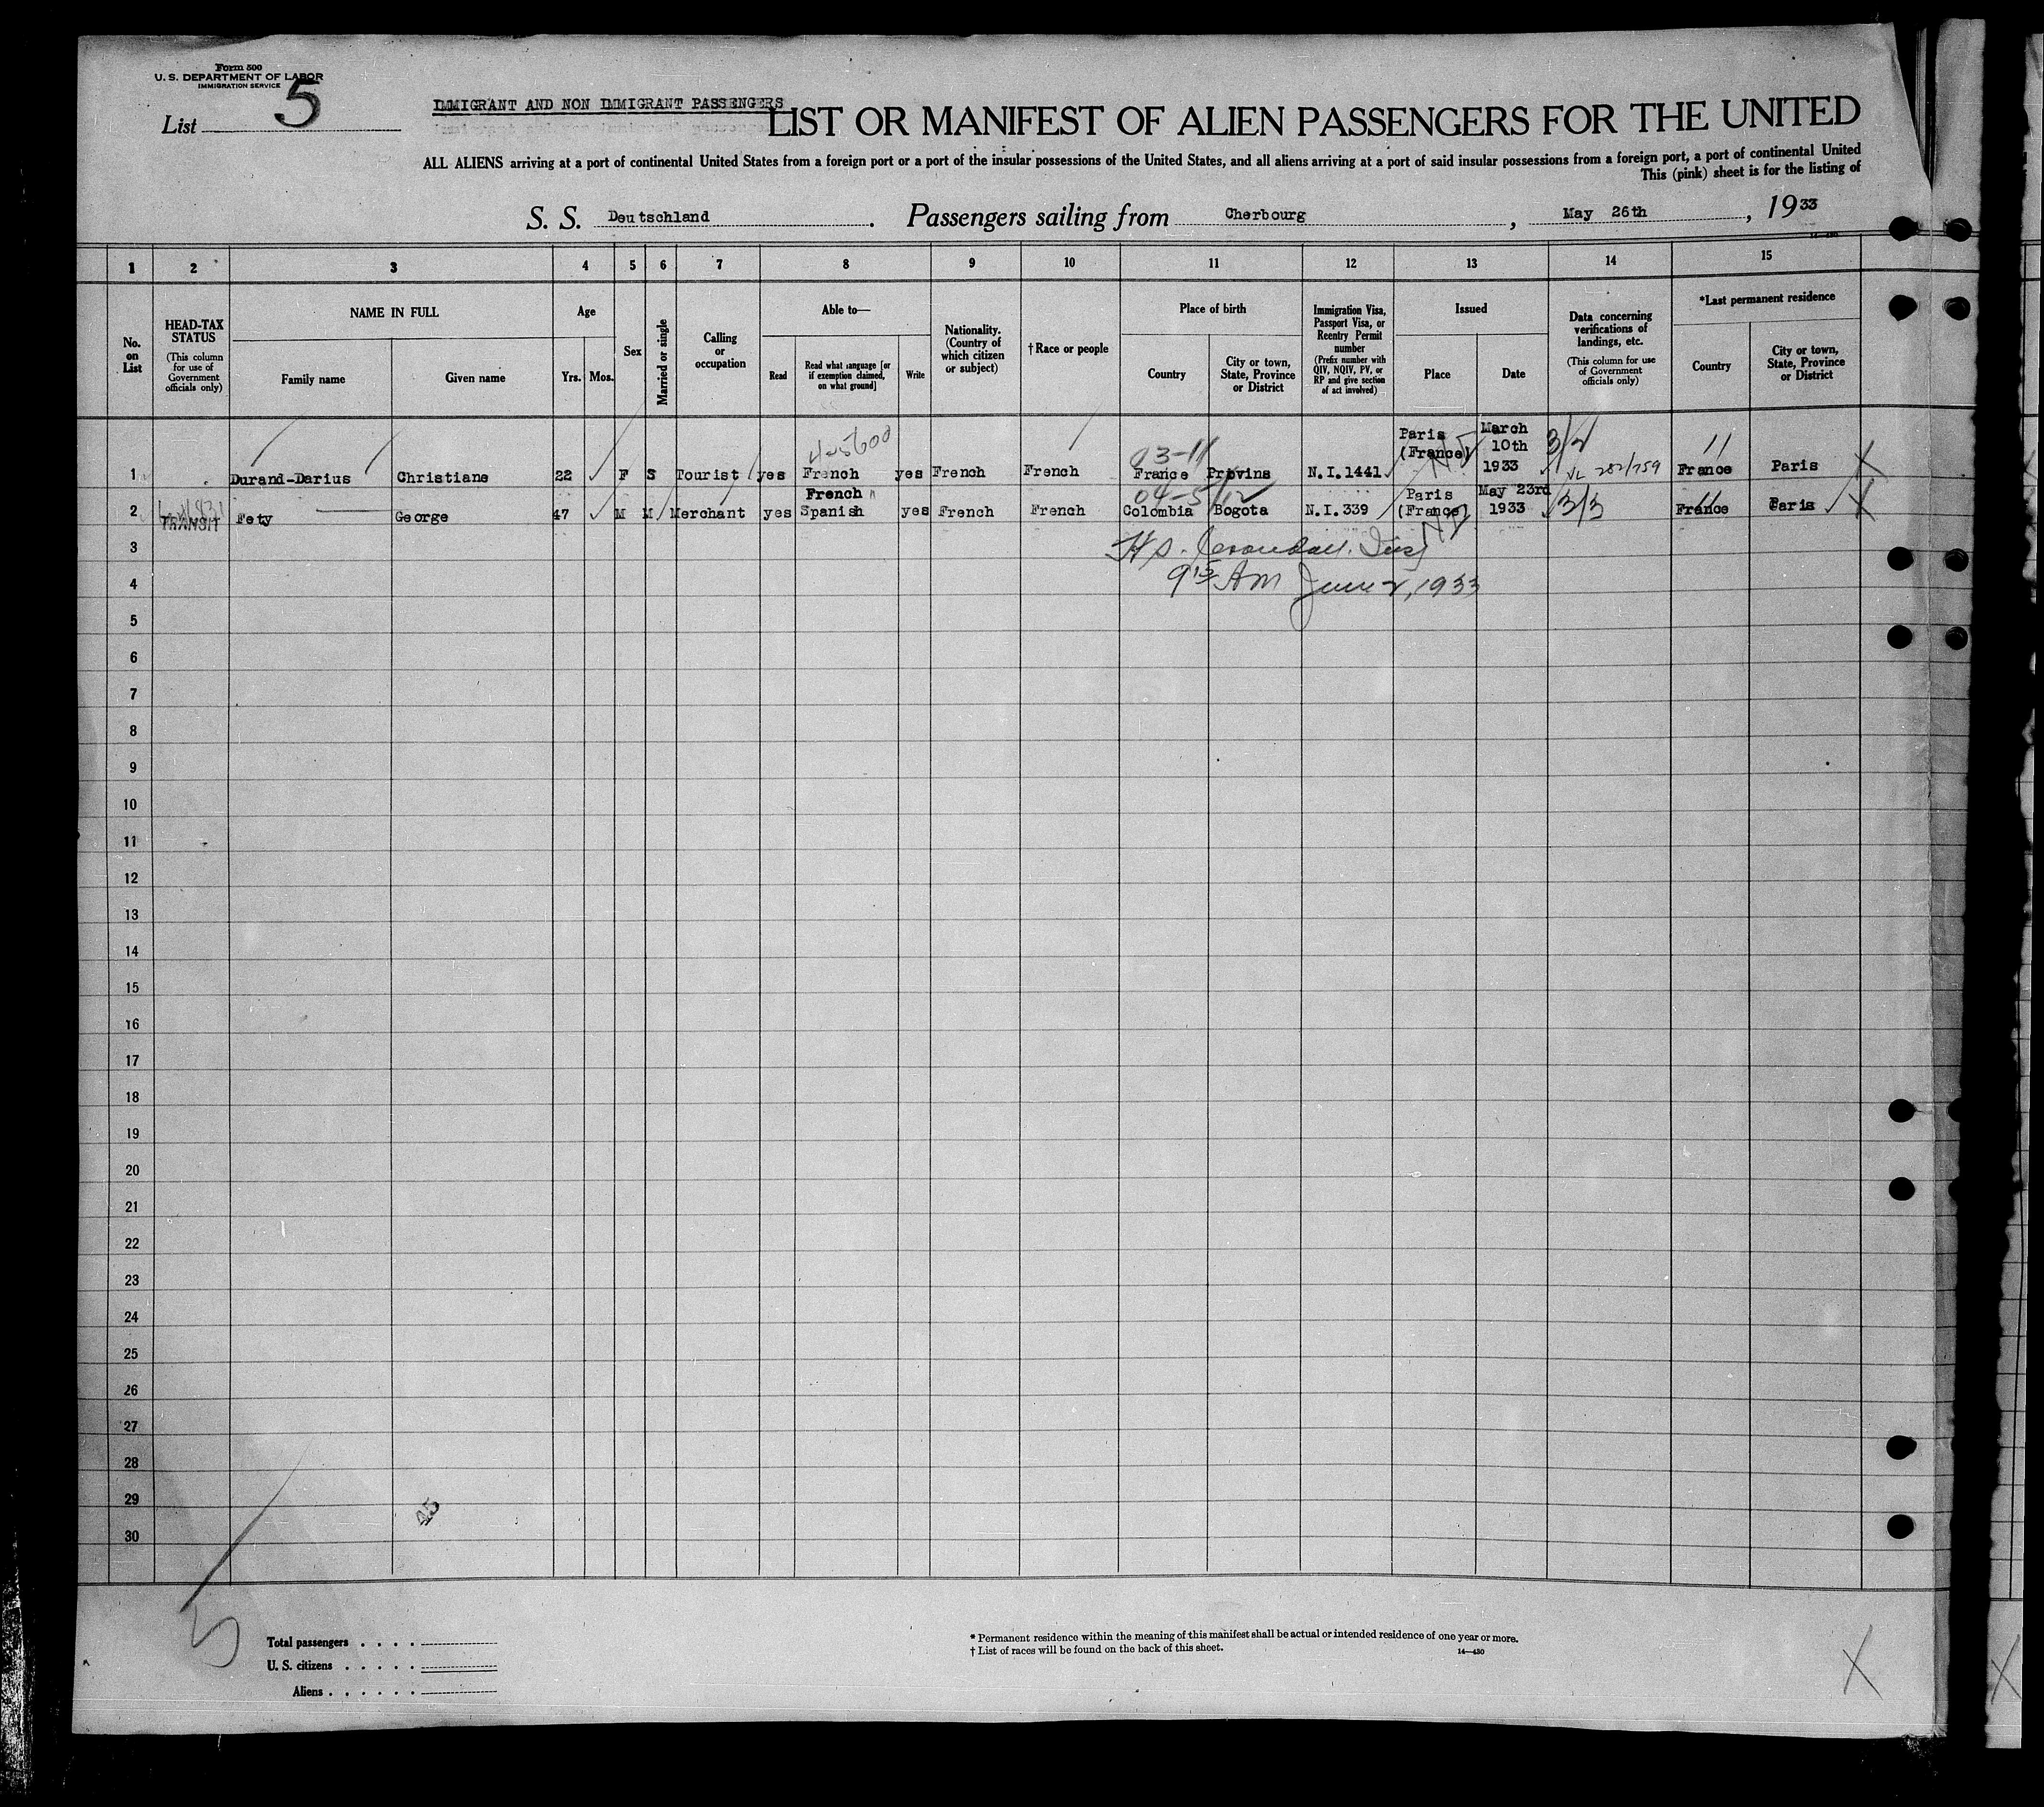 Form 500
U. S. DEPARTMENT OF LABOR
IMMIGRATION SERVICE
List 5
IMMIGRANT AND NON IMMIGRANT PASSENGERS
LIST OR MANIFEST OF ALIEN PASSENGERS FOR THE UNITED
ALL ALIENS arriving at a port of continental United States from a foreign port or a port of the insular possessions of the United States, and all aliens arriving at a port of said insular possessions from a foreign port, a port of continental United
This (pink) sheet is for the listing of
S. S. Deutschland. Passengers sailing from Cherbourg, May 26th, 1933
1 2 3 4 5 6 7 8 9 10 11 12 13 14 15
No. on List
HEAD-TAX STATUS
(This column for use of Government officials only)
NAME IN FULL
Family name
Given name
Age
Yrs. Mos.
Sex
Married or single
Calling or occupation
Able to—
Read
Read what language [or if exemption claimed, on what ground]
Write
Nationality. (Country of which citizen or subject)
†Race or people
Place of birth
Country
City or town, State, Province or District
Immigration Visa, Passport Visa, or Reentry Permit number
(Prefix number with QIV, NQIV, PV, or RP and give section of act involved)
Issued
Place
Date
Data concerning verifications of landings, etc.
(This column for use of Government officials only)
*Last permanent residence
Country
City or town, State, Province or District
03-11
3/2
11
1 Durand-Darius Christiane 22 F S Tourist yes French yes French French France Provins N.I.1441 Paris (France) March 10th 1933 France Paris
04-5/12
3/3
11
2 TRANSIT Fety George 47 M M Merchant yes French Spanish yes French French Colombia Bogota N.I.339 Paris (France) May 23rd 1933 France Paris
3
9 15 AM June 2, 1933
4
5
6
7
8
9
10
11
12
13
14
15
16
17
18
19
20
21
22
23
24
25
26
27
28
29
30
5
Total passengers . . . .
U. S. citizens . . . . .
Aliens . . . . . .
* Permanent residence within the meaning of this manifest shall be actual or intended residence of one year or more.
† List of races will be found on the back of this sheet.
14—430